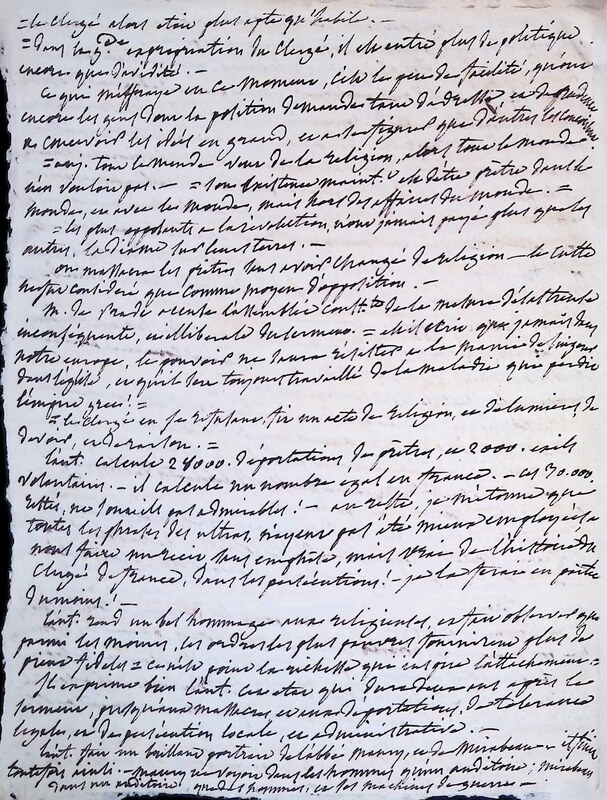 = le clergé alors étoit plus apte qu'habile. —
= dans la g.de expropriation du clergé, il est entré plus de politique
encore que d'avidité. —
Ce qui m'effraye en ce moment, c'est le peu de facilité, qu'ont
encore les gens dont la position demande tant d'adresse et de prudence
a concevoir les idées en grand, et a se figurer que d'autres les
tout le monde veut de la religion, alors tout le monde
n'en vouloit pas. — = son existence maint.t est d'être prêtre dans le
monde, et avec le monde, mais hors des affaires du monde. =
= les plus opposants a la révolution, n'ont jamais payé plus que les
autres, la dixme sur leurs terres. —
on massacra les prêtres sans avoir changé de religion — le culte
ne fut considéré que comme moyen d'opposition. —
M. de Pradt accuse l'assemblée const.te de la mesure désastreuse
inconséquente, et illibérale du serment. = il écrit que jamais dans
notre europe, le pouvoir ne saura résister a la manie de
dans l'église, et qu'il sera toujours travaillé de la maladie qui perdit
l'empire grec! =
= le clergé en se refusant, fit un acte de religion, et de lumières de
devoir, et de raison. =
l'aut. calcule 28000. déportations de prêtres, et 2000. exils
volontaires. — il calcule un nombre égal en france. — ces 30.000.
restés, ne sont ils pas admirables! — au reste, je m'étonne que
toutes les phrases des ultras, n'ayent pas été mieux employées a
nous faire un récit sans emphase, mais vrai de l'histoire du
Clergé de france, dans les persécutions! — je la ferais en partie
du moins! —
l'aut. rend un bel hommage aux religieuses, et fait observer que
parmi les moines, les ordres les plus pauvres fournirent plus de
gens fidèles = ce n'est point la richesse qui inspire l'attachement. =
Il exprime bien l'aut. cet état qui dura deux ans après le
serment, jusqu'aux massacres, et aux déportations, de tolérance
légale, et de persécution locale, et administrative. —
l'aut. fait un brillant portrait de l'abbé maury, et de Mirabeau —
toutefois — maury ne voyoit dans les hommes qu'un auditoire; mirabeau
dans un auditoire, que des hommes, et des machines de guerre —